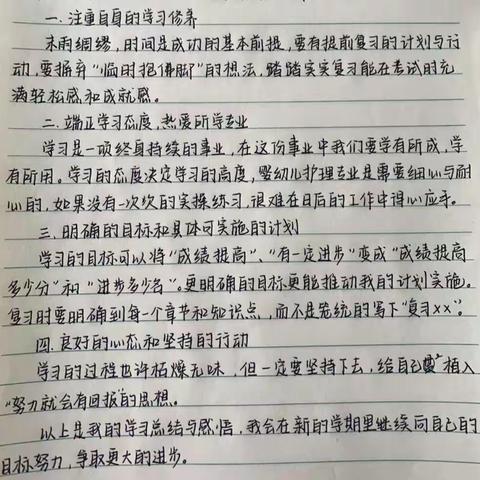 一、注重自身的学习修养
未雨绸缪，时间是成功的基本前提，要有提前复习的计划与行
动，要摒弃“临时抱佛脚”的想法，踏踏实实复习能在考试时充
满轻松感和成就感。
二、端正学习态度，热爱所学专业
学习是一项终身持续的事业，在这份事业中我们要学有所成，学
有所用。学习的态度决定学习的高度，婴幼儿护理专业是需要细心与耐
心的，如果没有一次次的实操练习，很难在日后的工作中得心应手。
三、明确的目标和具体可实施的计划
学习的目标可以将“成绩提高”、“有一定进步”变成“成绩提高
多少分”和“进步多少名”。更明确的目标更能推动我的计划实施。
复习时要明确到每一个章节和知识点，而不是笼统的写下“复习xx”。
四、良好的心态和坚持的行动
学习的过程也许枯燥无味，但一定要坚持下去，给自己植入
“努力就会有回报”的思想。
以上是我的学习总结与感悟，我会在新的学期里继续向自己的
目标努力，争取更大的进步。